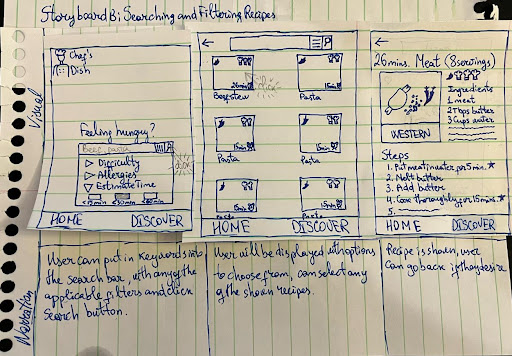 Storyboard B: Searching and Filtering Recipes
Visual
Chef's
Dish
Feeling hungry?
Beef, pasta
Difficulty
Allergies
Estimate Time
<15min <30min <60min
HOME DISCOVER
26min
Beef stew
15min
Pasta
15min
Pasta
15min
Pasta
15min
Pasta
15min
HOME DISCOVER
26mins. Meat (8 servings)
WESTERN
Ingredients
1 meat
2 Tbps butter
3 Cups water
Steps
1. Put meat in water for 5 min.
2. Melt butter
3. Add butter
4. Cook thoroughly for 15 mins.
5.
HOME DISCOVER
Narration
User can put in keywords into
the search bar, with any of the
applicable filters and click
search button.
User will be displayed with options
to choose from, can select any
of the shown recipes.
Recipe is shown, user
can go back if they desire